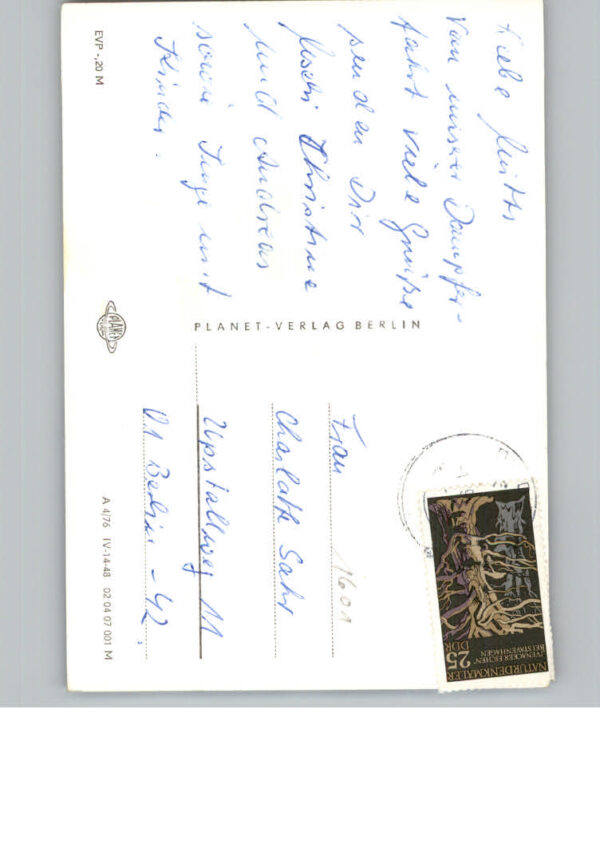 Liebe Mutti
Von unserer Dampfer-
fahrt viele Grüße
senden Dir
Christine
und Andreas
sowie Inge mit
Kinder.
EVP -,20 M
PLANET
PLANET-VERLAG BERLIN
Frau
1601
Charlotte Sahr
Upstallweg 11
01 Berlin - 42
A 4/76 IV-14-48 02 04 07 001 M
NATURDENKMÄLER
„IVENACKER EICHEN“
BEI STAVENHAGEN
25
DDR